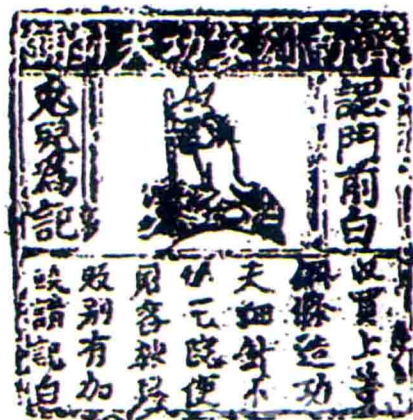 濟南劉家功夫針鋪
認門前白
兔兒爲記
收買上等
鋼條造功
夫細針不
宅院使
用客轉爲
販別有加
饒請記白